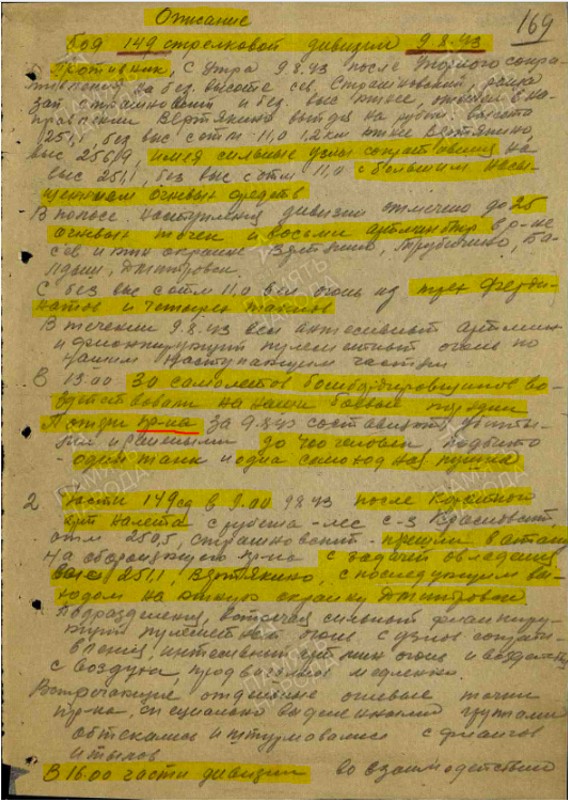 169
Описание
боя 149 стрелковой дивизии 9.8.43
Противник, с утра 9.8.43 после упорного сопро-
тивления на без. высоте сев. Страшновский,
зап. Страшновский и без. выс. южнее, отошел в на-
правлении Вертякино выйдя на рубеж высота
251,1 без выс с отм. 11,0 1,2 км южнее Вертякино,
выс 256,9, имея сильные узлы сопротивления на
выс 251,1, без выс с отм 11,0 с большим насы-
щением огневых средств
В полосе наступления дивизии отмечено до 25
огневых точек и восемь артминбатр в р-не
сев и южн окраине Вертякино, Трубичино,
Дмитровск.
С без выс с отм. 11,0 вел огонь из трех Ферди-
нантов и четырех танков
В течении 9.8.43 вел интенсивный артмин
и фланкирующий пулеметный огонь по
нашим наступающим частям
В 13.00 30 самолетов бомбардировщиков во-
здействовали на наши боевые порядки
Потери пр-ка за 9.8.43 составляют убиты-
ми и ранеными до 400 человек, подбито
- один танк и одна самоход ная пушка
2 Части 149 сд в 9.00 9.8.43 после короткого
арт налета с рубежа - лес с-з
отм 250,5, Страшновский - пошли в атаку
на обороняющегося пр-ка с задачей овладения
выс 251,1, Вертякино, с последующим вы-
ходом на южную окраину Дмитровск
Подразделения, встречая сильный фланкиру-
ющий пулеметный огонь с узлов сопроти-
вления, интенсивный арт мин огонь и воздействия
с воздуха, продвигались медленно.
Встречающие отдельные огневые точки
пр-ка, специально выделенными группами
обтекались и штурмовались с флангов
и тылов
В 16.00 части дивизии во взаимодействии
ПАМЯТЬ
НАРОДА